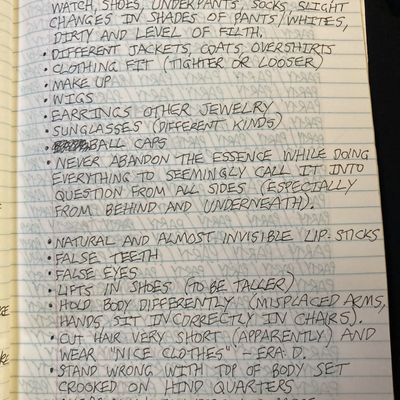 WATCH, SHOES, UNDERPANTS, SOCKS, SLIGHT
CHANGES IN SHADES OF PANTS/WHITES,
DIRTY AND LEVEL OF FILTH.
• DIFFERENT JACKETS, COATS, OVERSHIRTS
• CLOTHING FIT (TIGHTER OR LOOSER)
• MAKE UP
• WIGS
• EARRINGS OTHER JEWELRY
• SUNGLASSES (DIFFERENT KINDS)
• BALL CAPS
• NEVER ABANDON THE ESSENCE WHILE DOING
EVERYTHING TO SEEMINGLY CALL IT INTO
QUESTION FROM ALL SIDES (ESPECIALLY
FROM BEHIND AND UNDERNEATH).
• NATURAL AND ALMOST INVISIBLE LIP-STICKS
• FALSE TEETH
• FALSE EYES
• LIFTS IN SHOES (TO BE TALLER)
• HOLD BODY DIFFERENTLY (MISPLACED ARMS,
HANDS, SIT INCORRECTLY IN CHAIRS).
• CUT HAIR VERY SHORT (APPARENTLY) AND
WEAR "NICE CLOTHES" - ERA D.
• STAND WRONG WITH TOP OF BODY SET
CROOKED ON HIND QUARTERS